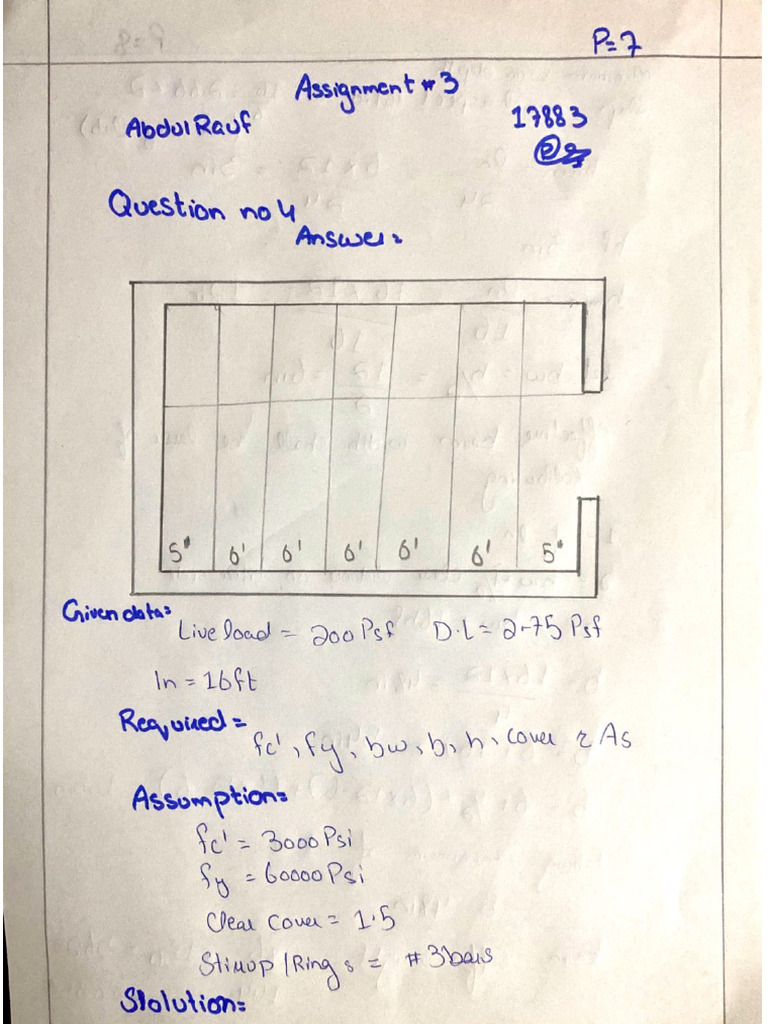 P=7
Assignment # 3
Abdul Rauf 17883
Question no 4
Answer:
5' 6' 6' 6' 6' 6' 5'
Given data:
Live load = 200 Psf D.L = 2.75 Psf
ln = 16ft
Required =
fc', fy, bw, b, h, cover & As
Assumption:
fc' = 3000 Psi
fy = 60000 Psi
Clear cover = 1.5
Stirrup / Rings = #3 bars
Slolution: